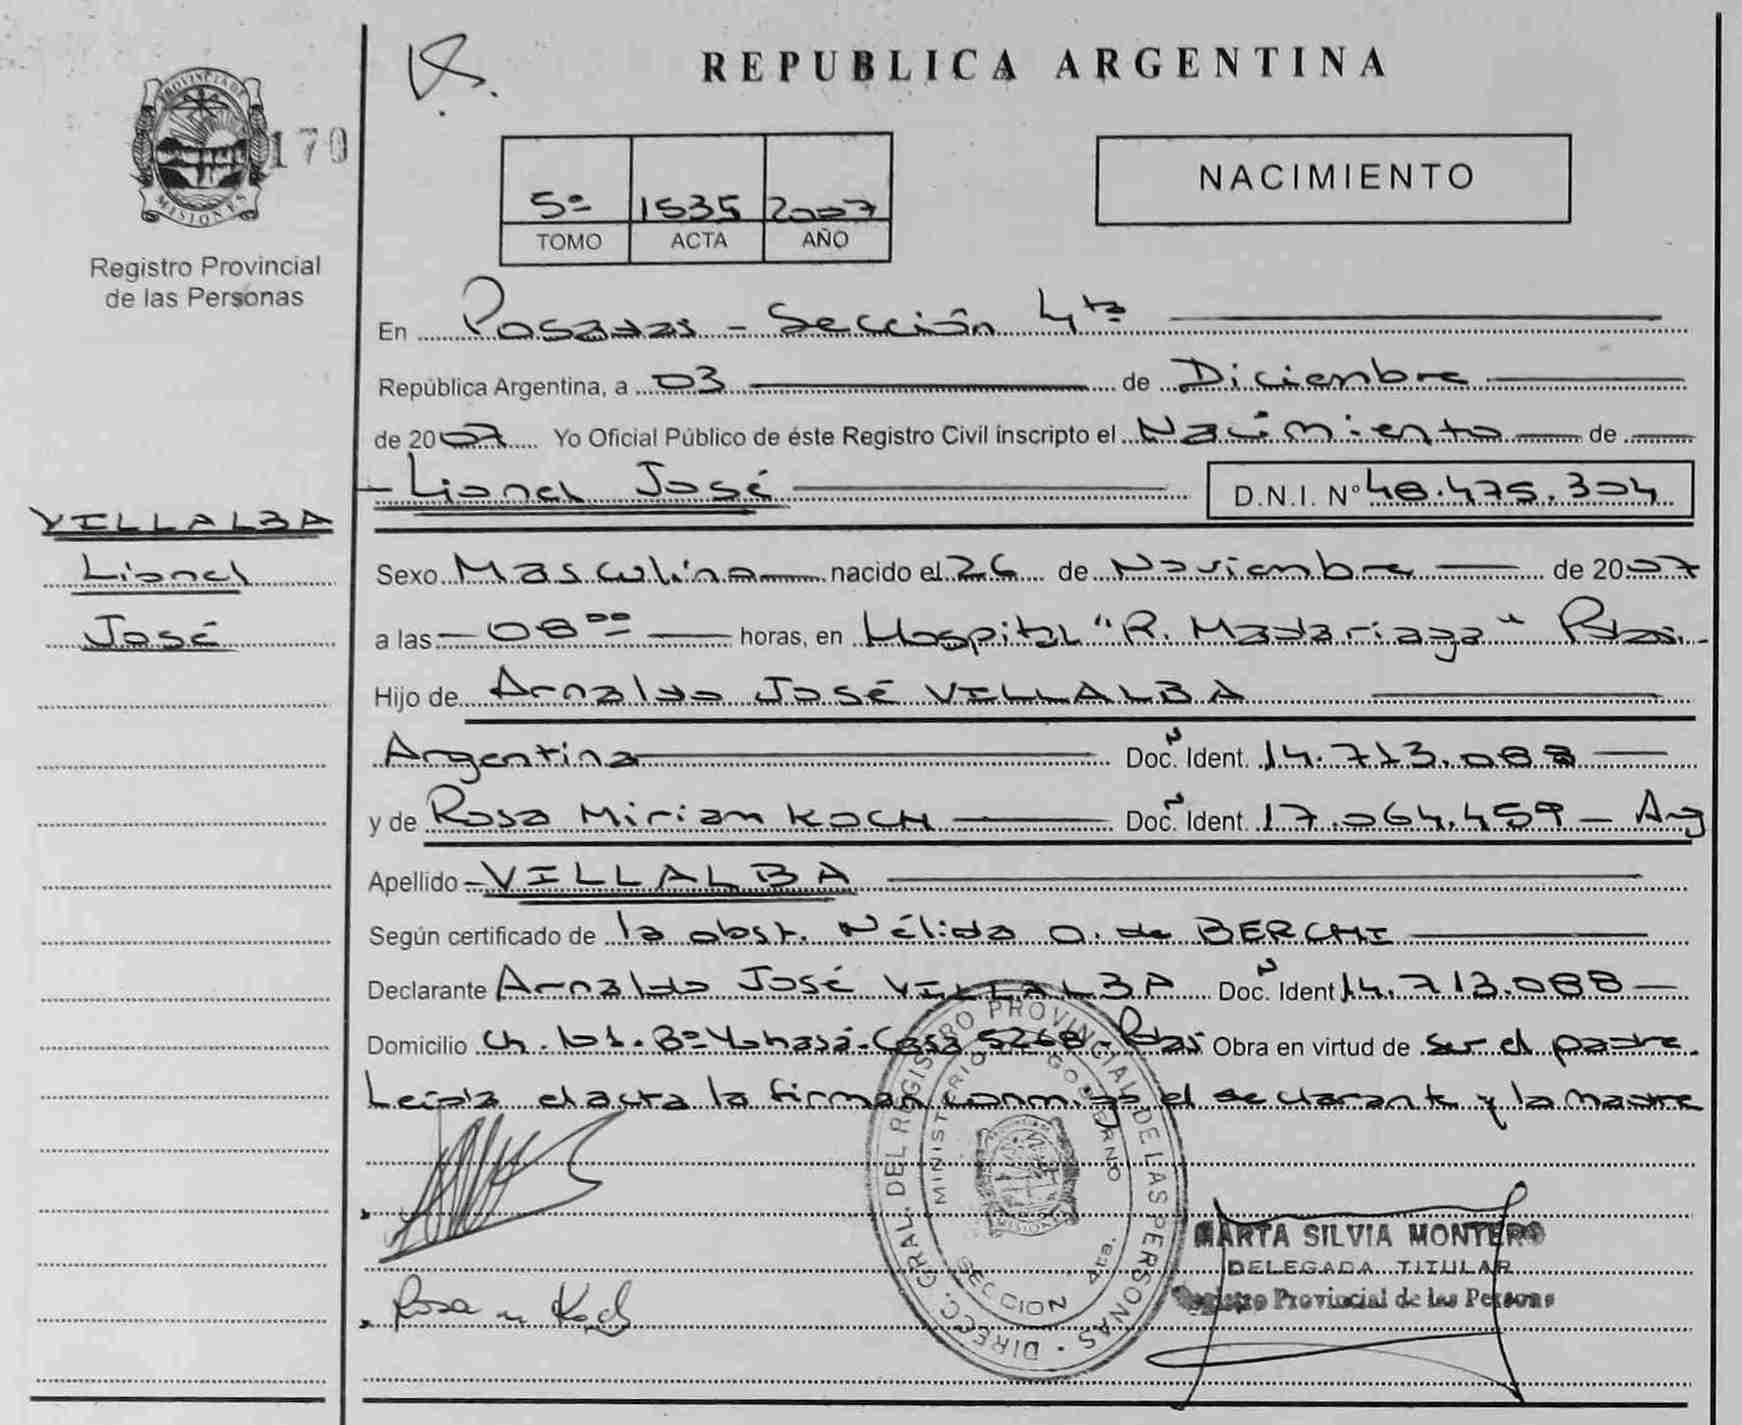 REPUBLICA ARGENTINA
PROVINCIA DE MISIONES
170
Registro Provincial
de las Personas
5º 1535 2007
TOMO ACTA AÑO
NACIMIENTO
En Posadas - Sección 4ta
República Argentina, a 03 de Diciembre
de 2007 Yo Oficial Público de éste Registro Civil inscripto el Nacimiento de
Lionel José D.N.I. Nº 48.475.304
VILLALBA
Lionel
José
Sexo Masculino nacido el 26 de Noviembre de 2007
a las 08 00 horas, en Hospital "R. Madariaga" Pdas.
Hijo de Arnaldo José VILLALBA
Argentina Doc. Ident. 14.713.088
y de Rosa Miriam KOCH Doc. Ident. 17.064.459 - Arg
Apellido VILLALBA
Según certificado de la obst. Nélida O. de BERCHI
Declarante Arnaldo José VILLALBA Doc. Ident 14.713.088
Domicilio Ch. 101. Bº Yohasá - Casa 5268 - Pdas Obra en virtud de ser el padre.
Leída el acta la firman conmigo el declarante y la madre
DIRECC. GRAL. DEL REGISTRO PROVINCIAL DE LAS PERSONAS
MINISTERIO GOBIERNO
MISIONES
SECCION 4ta.
MARTA SILVIA MONTERO
DELEGADA TITULAR
Registro Provincial de las Personas
Rosa M Koch